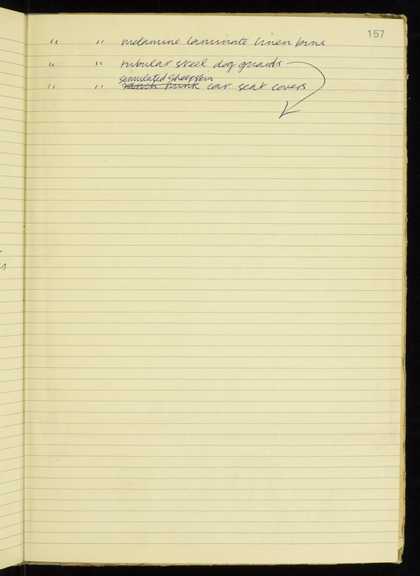 157
" " melamine laminate linen bins
" " tubular steel dog guards
simulated sheepskin
" " ranch mink car seat covers